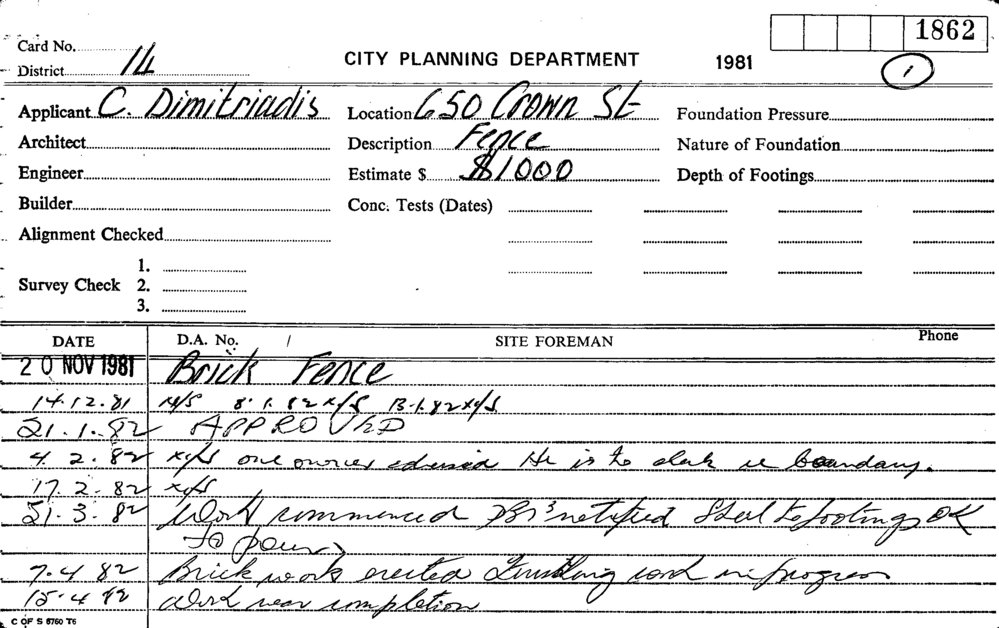 1862
Card No.
District 14
CITY PLANNING DEPARTMENT 1981
1
Applicant C. Dimitriadis Location 650 Crown St Foundation Pressure
Architect Description Fence Nature of Foundation
Engineer Estimate $ $1000 Depth of Footings
Builder Conc. Tests (Dates)
Alignment Checked
1.
Survey Check 2.
3.
DATE D.A. No. / SITE FOREMAN Phone
20 NOV 1981 Brick Fence
14.12.81 N/S 8.1.82 N/S 13.1.82 N/S
21.1.82 APPROVED
4.2.82 N/S one owner He is to check re boundary.
17.2.82 N/S
31.3.82 Work commenced notified Steel to footings OK
To pour
7.4.82 Brick work erected Finishing work in progress
15.4.82 Work near completion
C OF S 6760 T6